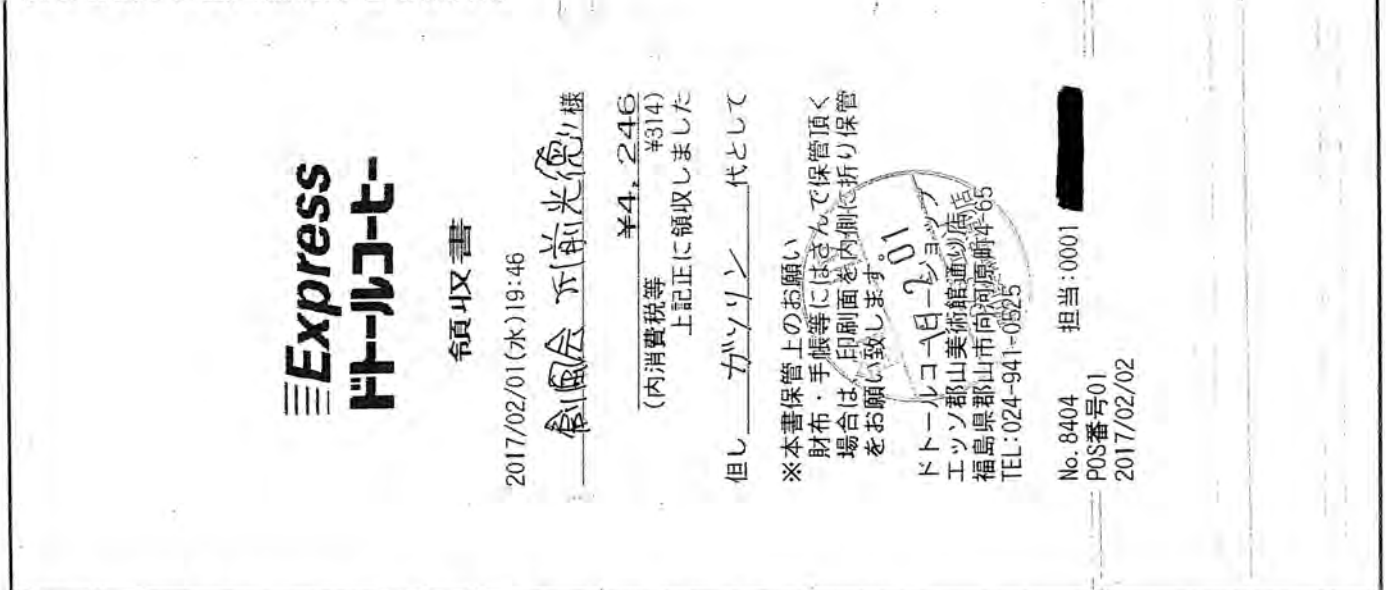 Express
ドトールコーヒー
領収書
2017/02/01(水)19:46
創風会 下前光徳 様
¥4,246
(内消費税等 ¥314)
上記正に領収しました
但し ガソリン 代として
※本書保管上のお願い
財布・手帳等にはさんで保管頂く
場合は、印刷面を内側に折り保管
をお願い致します。
ドトールコーヒーショップ
エッソ郡山美術館通り店
福島県郡山市向河原町4-65
TEL:024-941-0525
No.8404 担当:0001
POS番号01
2017/02/02